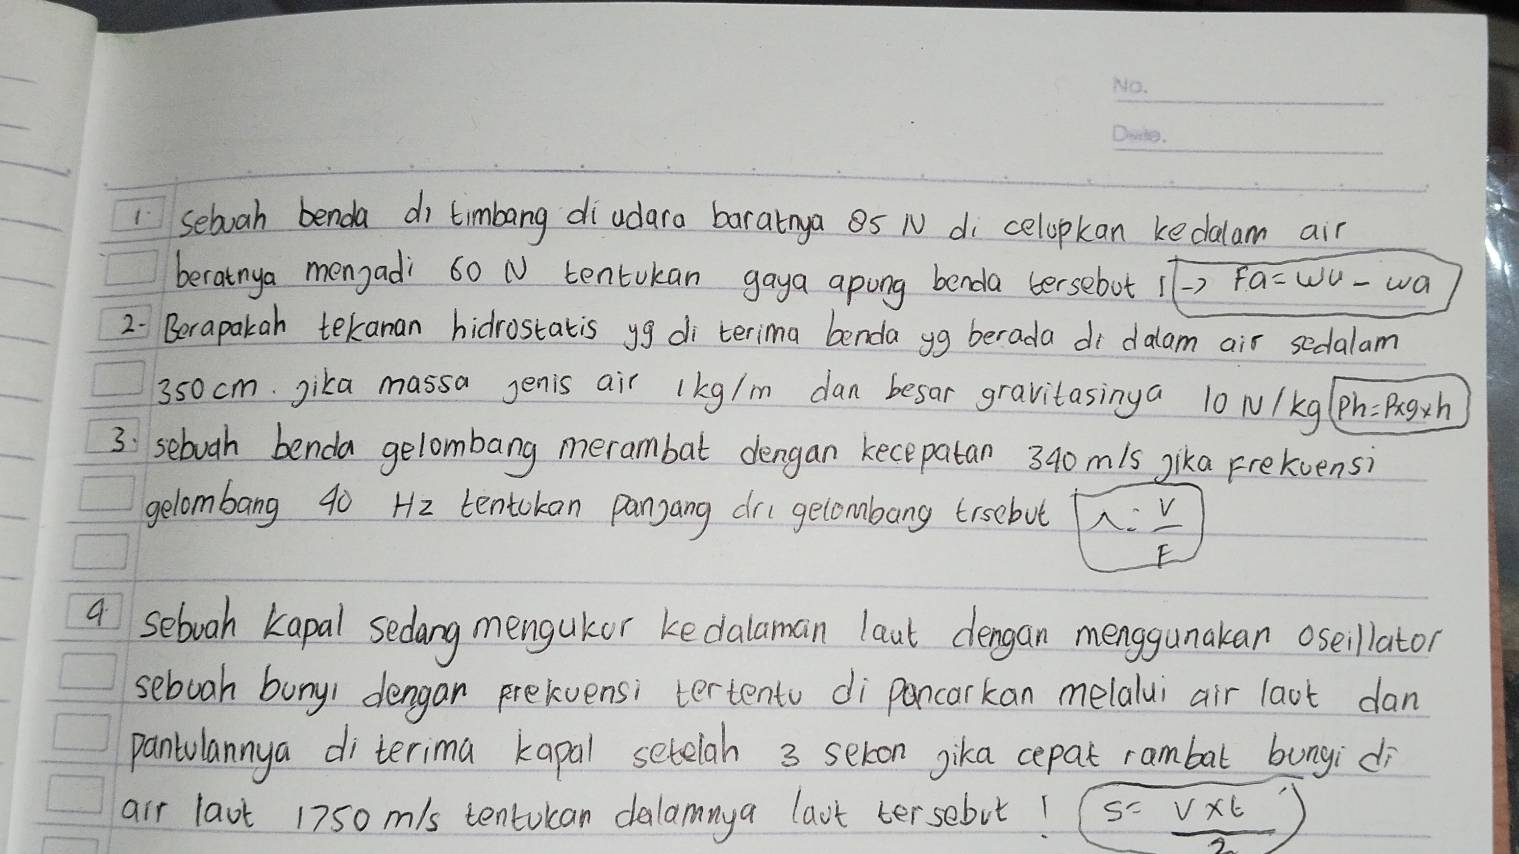 No.
Date.
1. sebuah benda di timbang di udara baratnya 85 N di celupkan kedalam air
beratnya menjadi 60 N tentukan gaya apung benda tersebut ! → Fa = wu - wa
2- Berapakah tekanan hidrostatis yg di terima benda yg berada di dalam air sedalam
350 cm. jika massa jenis air 1 kg/m dan besar gravitasinya 10 N/kg Ph = P×g×h
3. sebuah benda gelombang merambat dengan kecepatan 340 m/s jika Frekuensi
gelombang 40 Hz tentukan panjang dri gelombang trsebut λ = V/F
4 sebuah kapal sedang mengukur kedalaman laut dengan menggunakan oseillator
sebuah bunyi dengan Frekuensi tertentu di pancarkan melalui air laut dan
pantulannya di terima kapal setelah 3 sekon jika cepat rambat bunyi di
air laut 1750 m/s tentukan dalamnya laut tersebut ! S = V×t/2